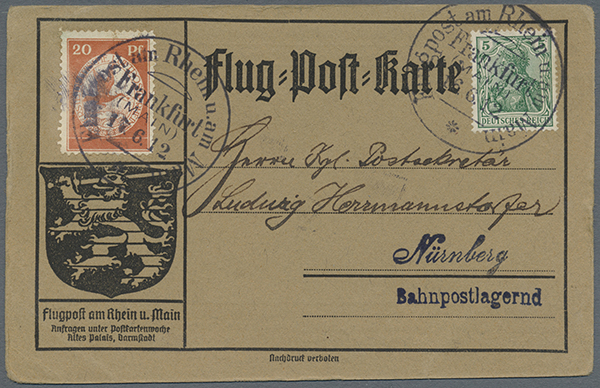 20 Pf
Flugpost am Rhein u. am Main
Frankfurt
(MAIN)
17 6 12
Flug-Post-Karte
Flugpost am Rhein u. am Main
Frankfurt
5
DEUTSCHES REICH
Herrn Kgl. Postsekretär
Ludwig Herrmannstorfer
Nürnberg
Bahnpostlagernd
Flugpost am Rhein u. Main
Anfragen unter Postkartenwoche
Altes Palais, Darmstadt
Nachdruck verboten